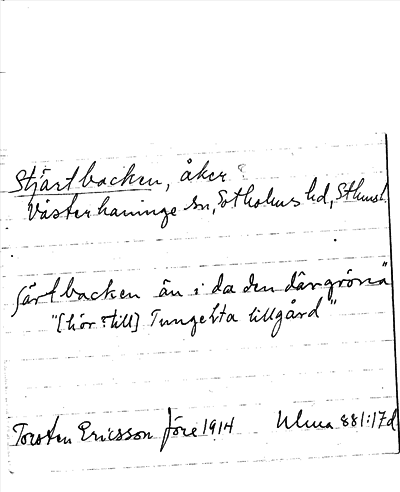 Stjärtbacken, åker ?
Västerhaninge sn, Sotholms hd, Sthmsl.
särtbacken än i da den där gröna"
"[hör till] Tungelsta lillgård"
Torsten Ericsson före 1914 Ulma 881:17d